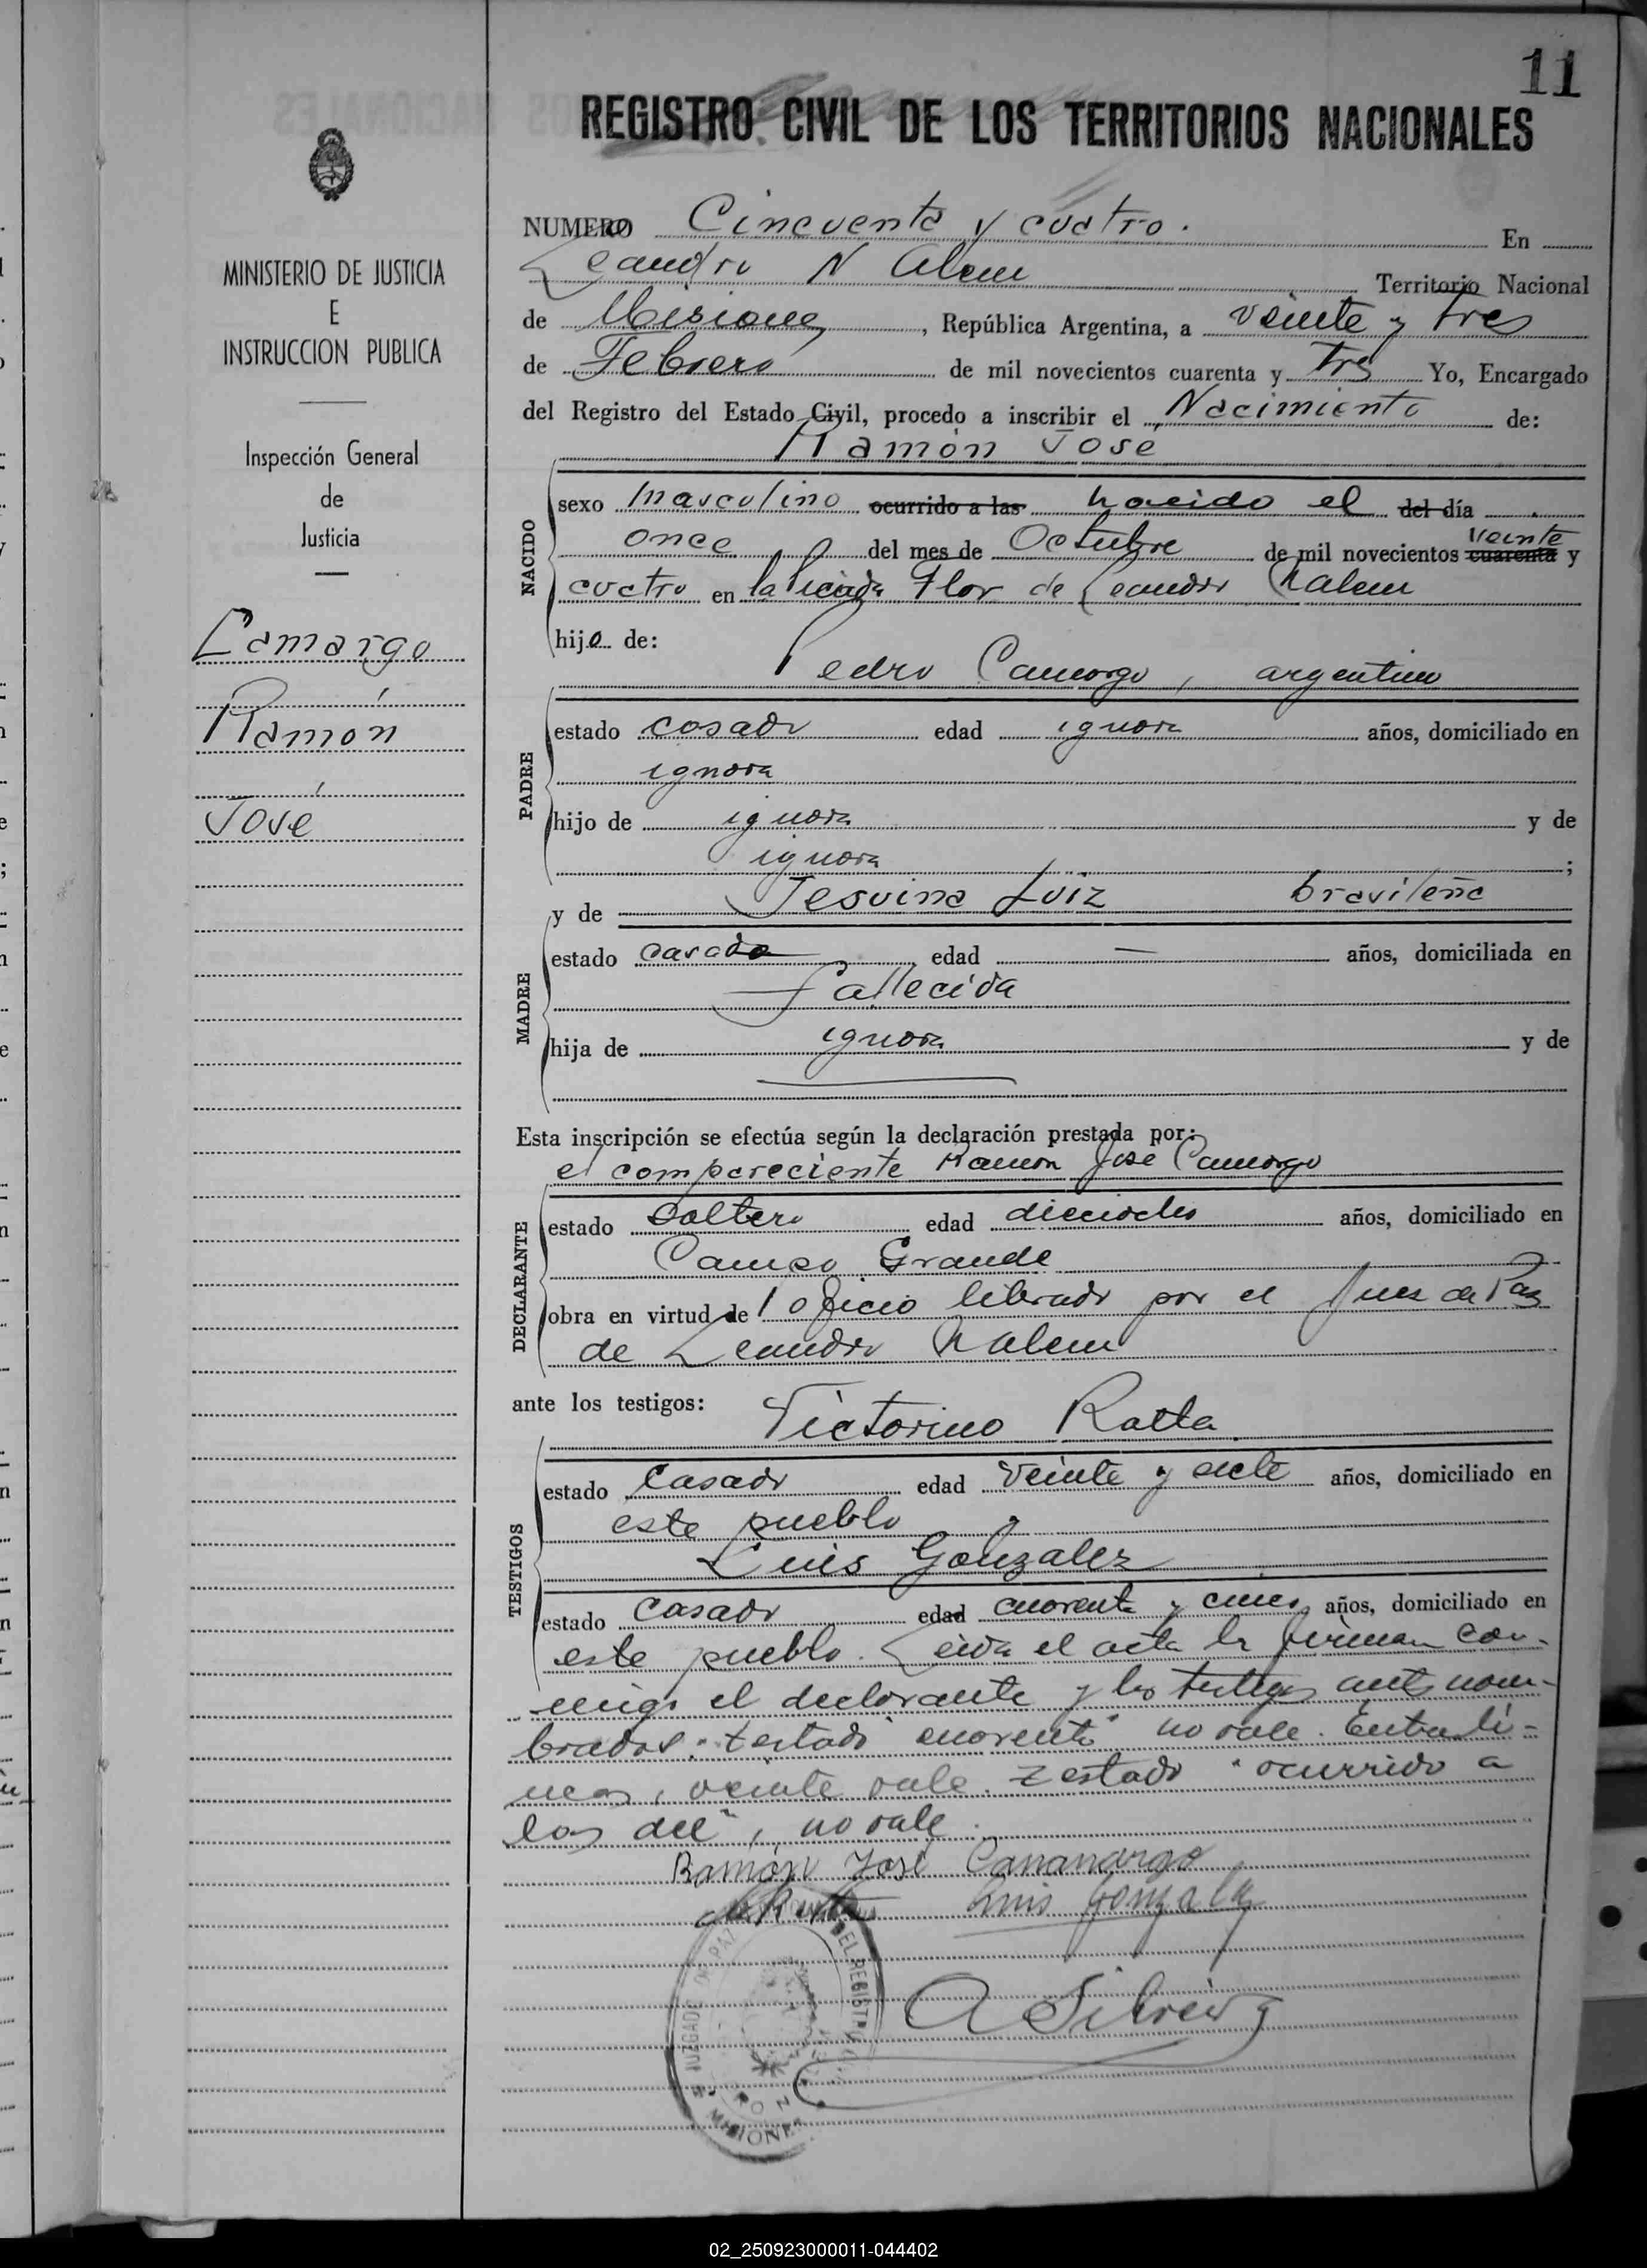 11
REGISTRO CIVIL DE LOS TERRITORIOS NACIONALES
MINISTERIO DE JUSTICIA
E
INSTRUCCION PUBLICA
Inspección General
de
Justicia
Camargo
Ramón
José
NUMERO Cincuenta y cuatro. En
Leandro N Alem Territorio Nacional
de Misiones, República Argentina, a veinte y tres
de Febrero de mil novecientos cuarenta y tres Yo, Encargado
del Registro del Estado Civil, procedo a inscribir el Nacimiento de:
Ramón Jose
NACIDO
sexo masculino ocurrido a las nacido el del día
once del mes de Octubre de mil novecientos cuarenta veinte y
cuatro en la Picada Flor de Leandro N alem
hijo de:
Pedro Camargo, argentino
PADRE
estado casado edad ignora años, domiciliado en
ignora
hijo de ignora y de
ignora ;
y de Jesuina Luiz brasileña
MADRE
estado casada edad — años, domiciliada en
fallecida
hija de ignora y de
Esta inscripción se efectúa según la declaración prestada por:
el compareciente Ramon Jose Camargo
DECLARANTE
estado soltero edad dieciocho años, domiciliado en
Campo Grande
obra en virtud de oficio librado por el Juez de Paz
de Leandro N alem
ante los testigos: Victorino Ratta
TESTIGOS
estado Casado edad veinte y siete años, domiciliado en
este pueblo y
Luis Gonzalez
estado Casado edad cuarenta y cinco años, domiciliado en
este pueblo. Leida el acta la firman con-
migo el declarante y los testigos ants nom-
brados: testado "cuarenta" no vale. Entre li-
neas, veinte vale. Testado "ocurrido a
las del", no vale.
Ramón José Canamargo
Luis Gonzalez
A Silveira
JUZGADO DE PAZ DEL REGISTRO
MISIONES
02_250923000011-044402